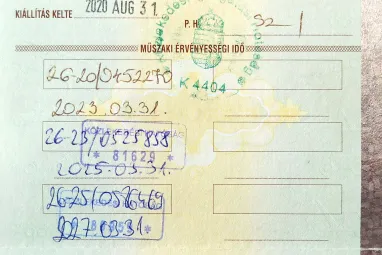 KIÁLLÍTÁS KELTE 2020 AUG 31. P. H.
MŰSZAKI ÉRVÉNYESSÉGI IDŐ
K 4404
26-20/0452270
2023.03.31.
26-23/0525858
* 81629 *
2025.03.31.
2027.03.31